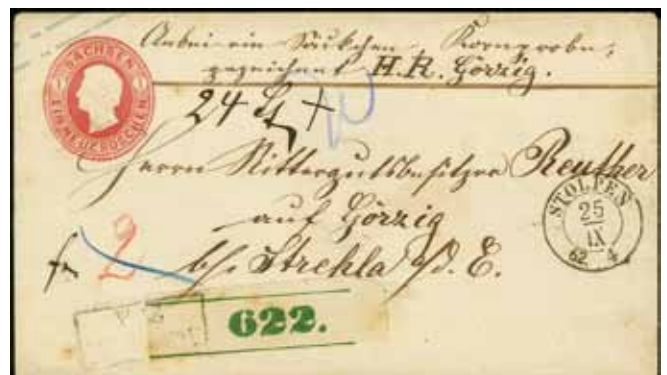 SACHSEN
EIN NEUGROSCHEN
Anbei ein Säckchen Kornprobe,
gezeichnet H. R. Görzig.
24
Herrn Rittergutsbesitzer Reuther
auf Görzig
b/. Strehla a/d. E.
2
STOLPEN
25
IX
62 4
622.